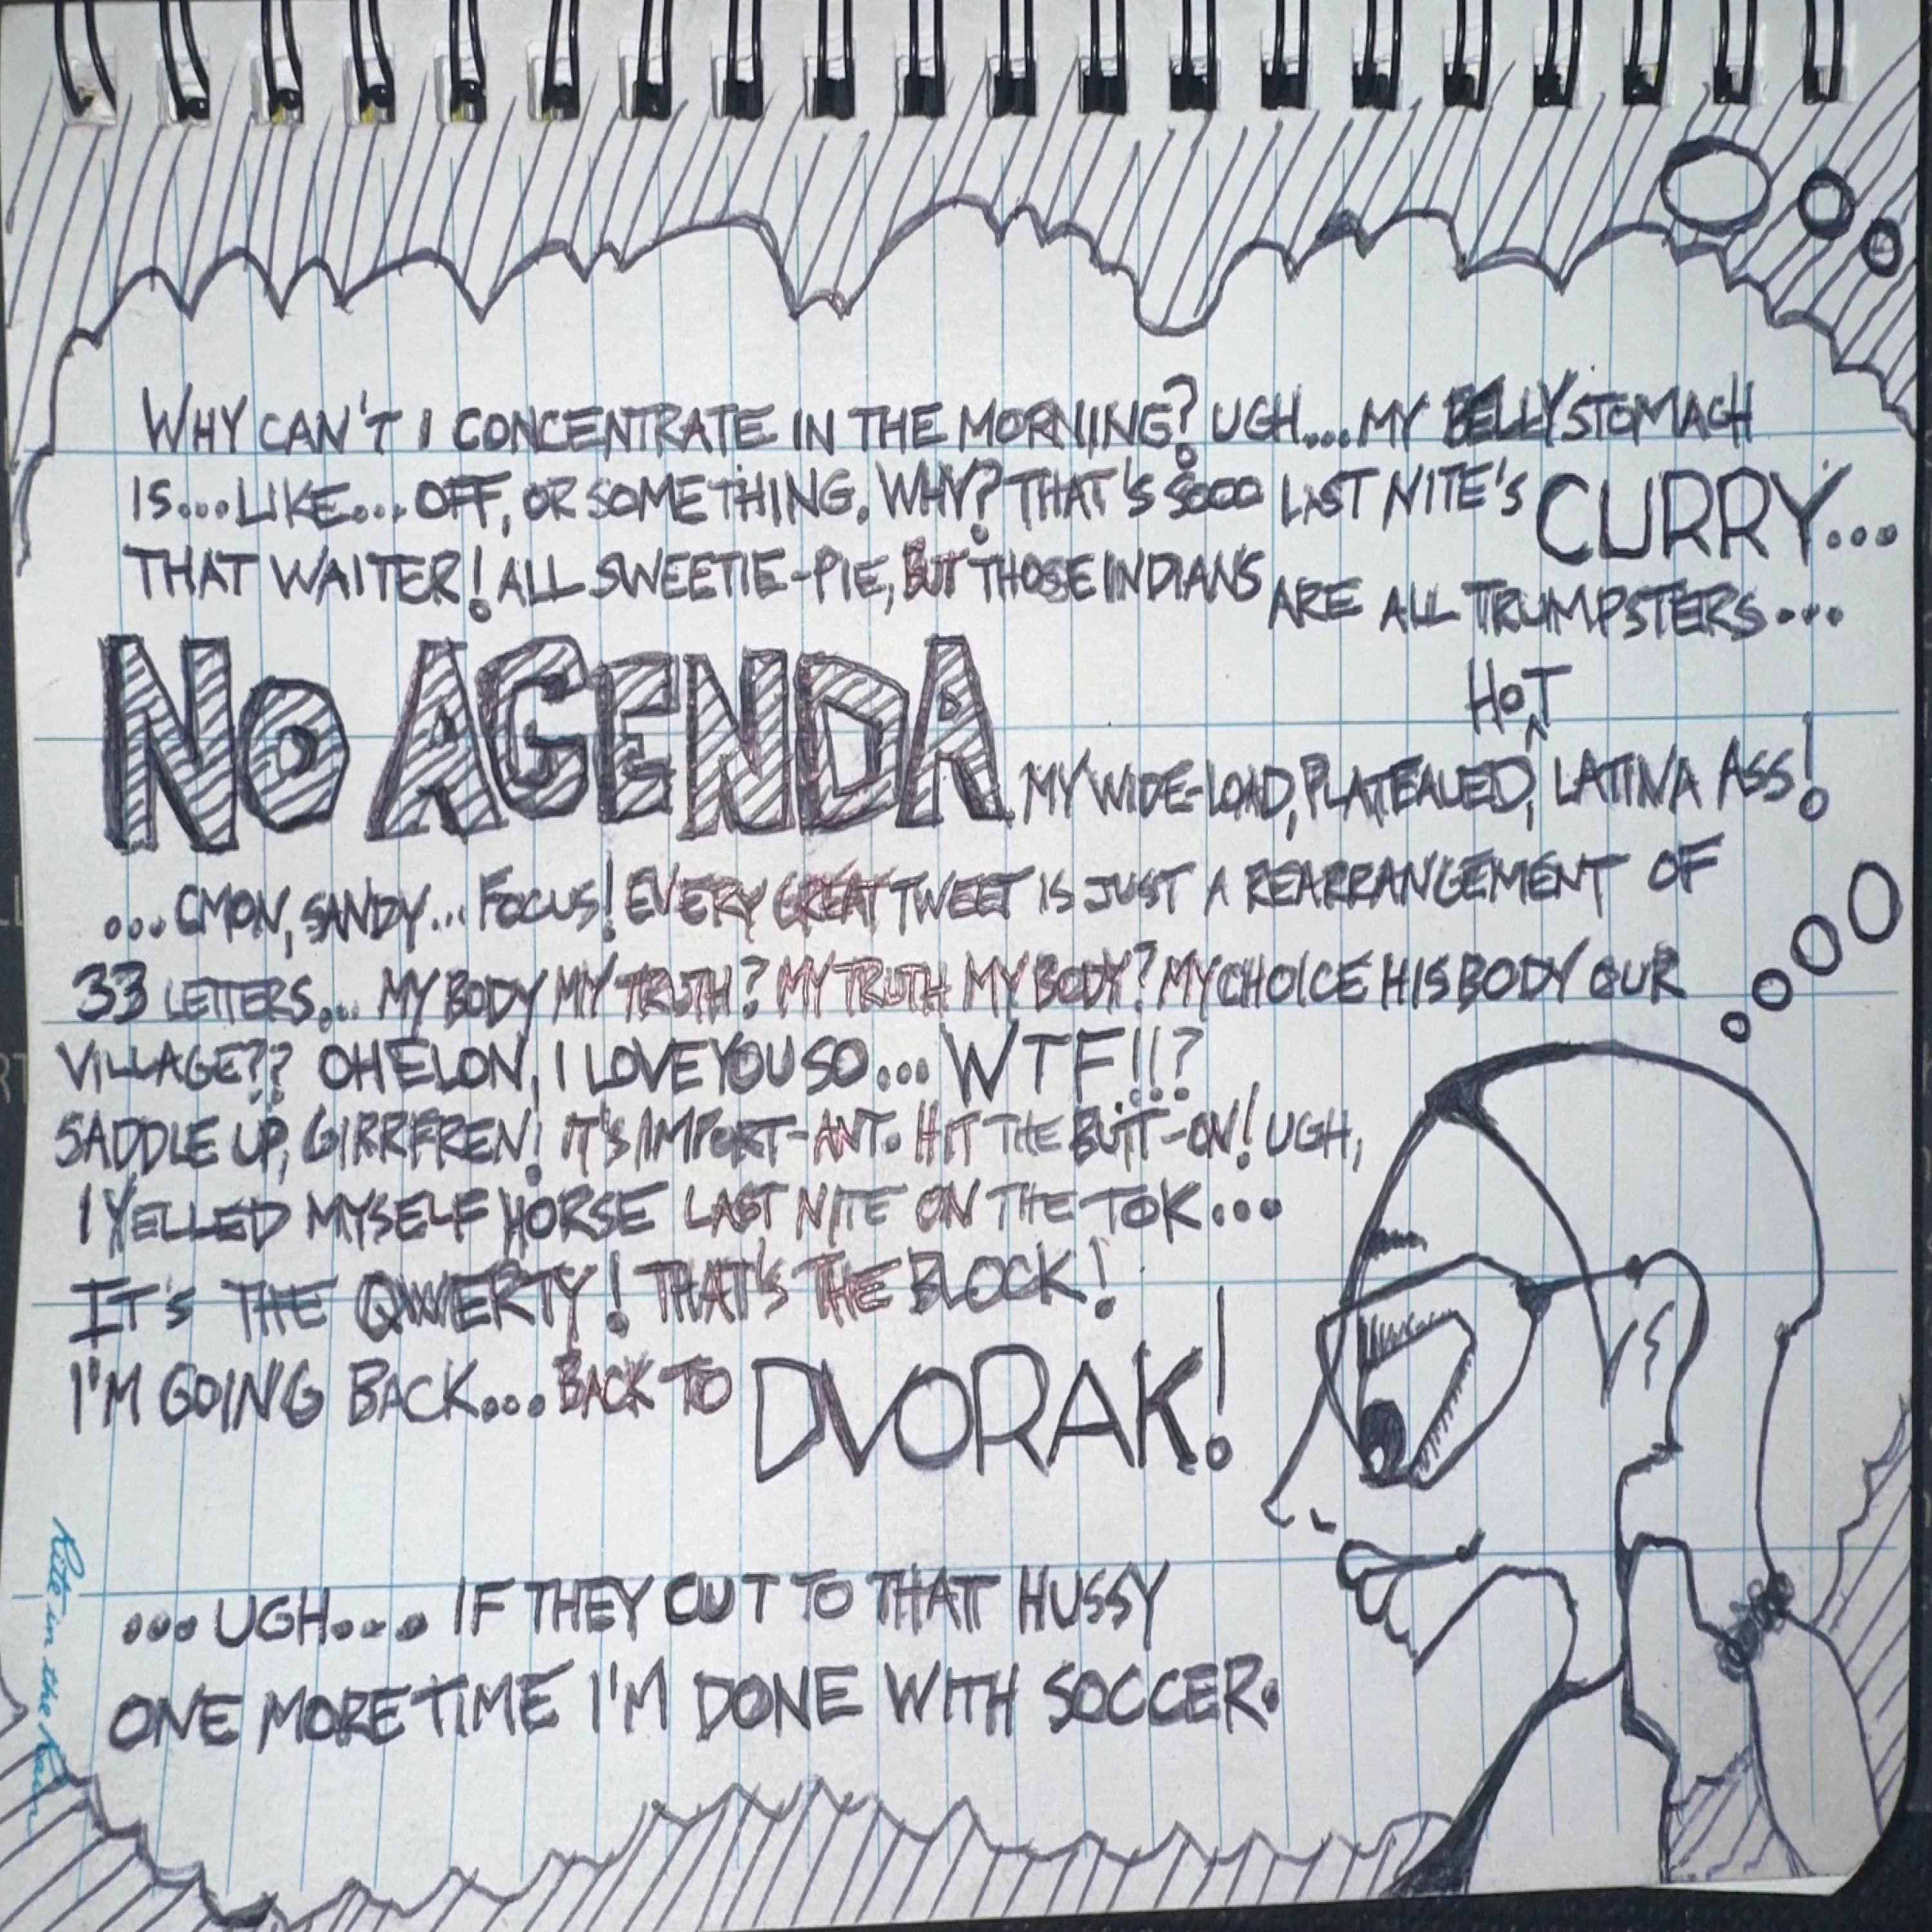 WHY CAN'T I CONCENTRATE IN THE MORNING? UGH....MY BELLY STOMACH
IS...LIKE... OFF, OR SOMETHING. WHY? THAT'S SOOO LAST NITE'S CURRY...
THAT WAITER! ALL SWEETIE-PIE, BUT THOSE INDIANS ARE ALL TRUMPSTERS...
HOT
NO AGENDA MY WIDE-LOAD, PLATEAUED, LATINA ASS!
...CMON, SANDY... FOCUS! EVERY GREAT TWEET IS JUST A REARRANGEMENT OF
33 LETTERS... MY BODY MY TRUTH? MY TRUTH MY BODY? MY CHOICE HIS BODY OUR
VILLAGE?? OH ELON, I LOVE YOU SO... WTF!!?
SADDLE UP, GIRRFREN! IT'S IMPORT-ANT. HIT THE BUTT-ON! UGH,
I YELLED MYSELF HORSE LAST NITE ON THE TOK...
IT'S THE QWERTY! THAT'S THE BLOCK!
I'M GOING BACK... BACK TO DVORAK!
...UGH.... IF THEY CUT TO THAT HUSSY
ONE MORE TIME I'M DONE WITH SOCCER.
Rite in the Rain